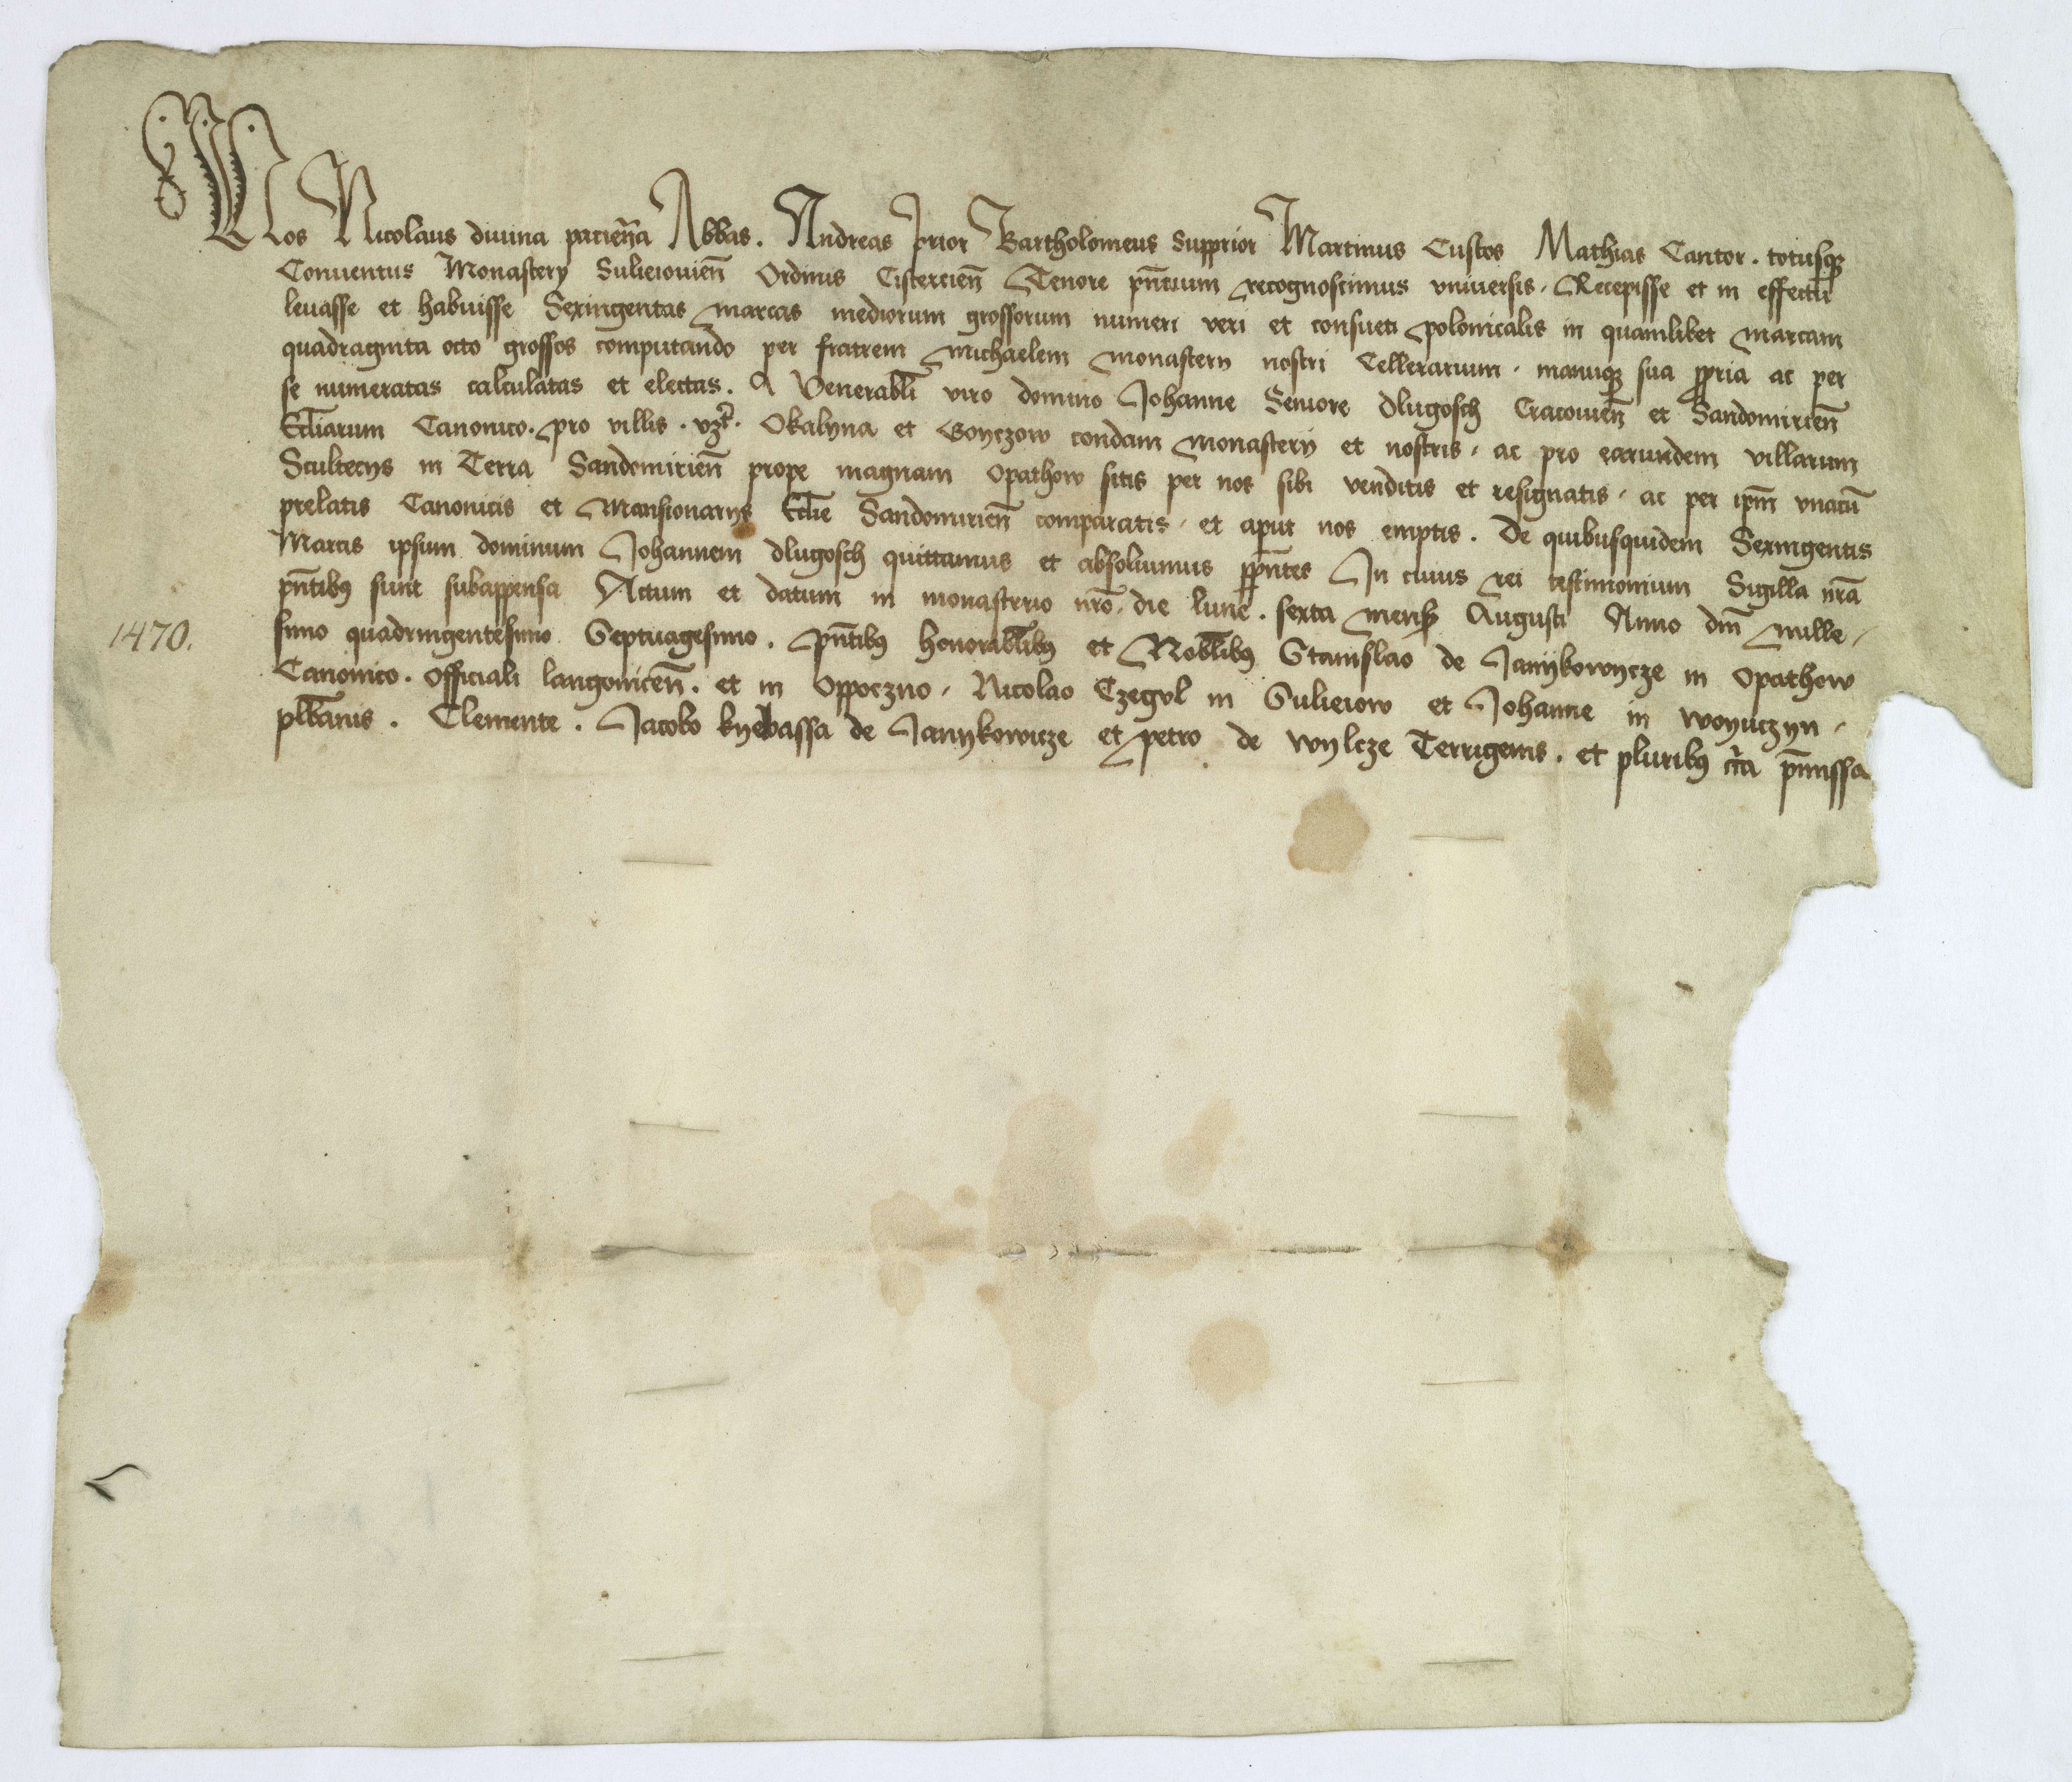 Nos Nicolaus diuina pacien̄a Abbas. Andreas prior Bartholomeus Supprior Martinus Custos Mathias Cantor. totusqꝫ
Conuentus Monastery Sulieiouien̄ Ordinis Cistercien̄ Tenore pn̄tium recognoscimus vniuersis. Recepisse et in effectū
leuasse et habuisse Sexingentas marcas mediorum grossorum numeri veri et consueti polonicalis in quamlibet marcam
quadraginta octo grossos computando per fratrem Michaelem monastery nostri Cellerarium. manuqꝫ sua ꝓpria ac per
se numeratas calculatas et electas. A Venerabl̄i viro domino Johanne Seniore dlugosch Cracouien̄ et Sandomirien̄
Eccl̄iarum Canonico. pro villis. vꝫt. Okalyna et Goyczow condam monastery et nostris. ac pro earundem villarum
Scultecys in Terra Sandomirien̄ prope magnam Opathow sitis per nos sibi venditis et resignatis. ac per ip̄m vnacū
prelatis Canonicis et Mansionarys Eccl̄ie Sandomirien̄ comparatis. et aput nos emptis. De quibusquidem Sexingentis
Marcis ipsum dominum Johannem dlugosch quittamus et absoluimus ꝑpn̄tes In cuius rei testimonium Sigilla nr̄a
pn̄tibꝫ sunt subappensa Actum et datum in monasterio nr̄o. die lune. sexta mensꝭ Augusti Anno dn̄i Mille,
simo quadringentesimo Septuagesimo. pn̄tibꝫ honorabl̄ibꝫ et Nobl̄ibꝫ Stanislao de Janykowycze in Opathow
1470.
Canonico. Officiali langonicen̄. et in Oppoczno. Nicolao Czegvl in Sulieiow et Johanne in woyuczyn.
pl̄banis. Clemente. Jacobo kyelbassa de Janykowicze et petro de wylcze Terrigenis. et pluribꝫ cir̄a p̄missa